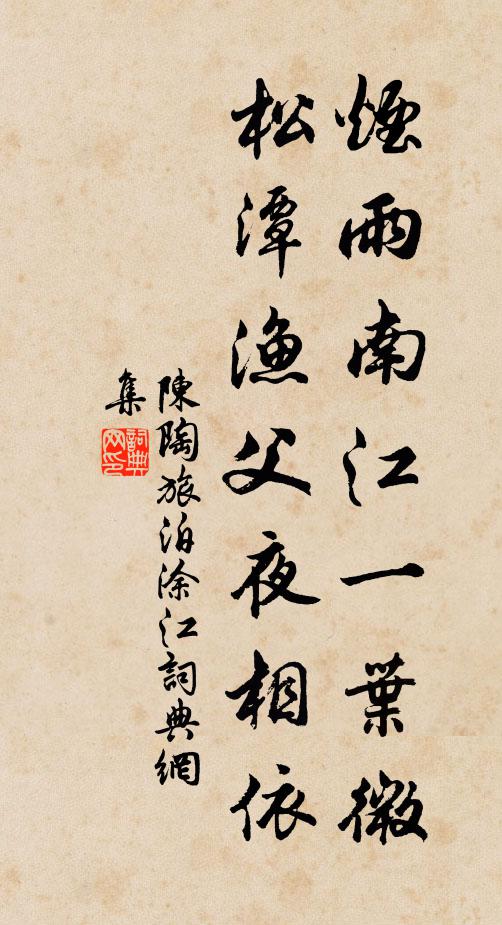 煙雨南江一葉微
松潭漁父夜相依
陳陶旅泊涂江詞典網
集
詞典網印